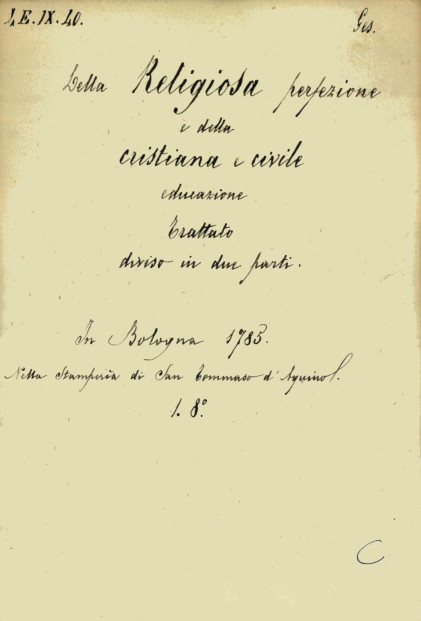 LE.IX.40. Ges.
Della Religiosa perfezione
e della
cristiana e civile
educazione
Trattato
diviso in due parti.
In Bologna 1785.
Nella Stamperia di San Tommaso d'Aquino
1. 8º
C